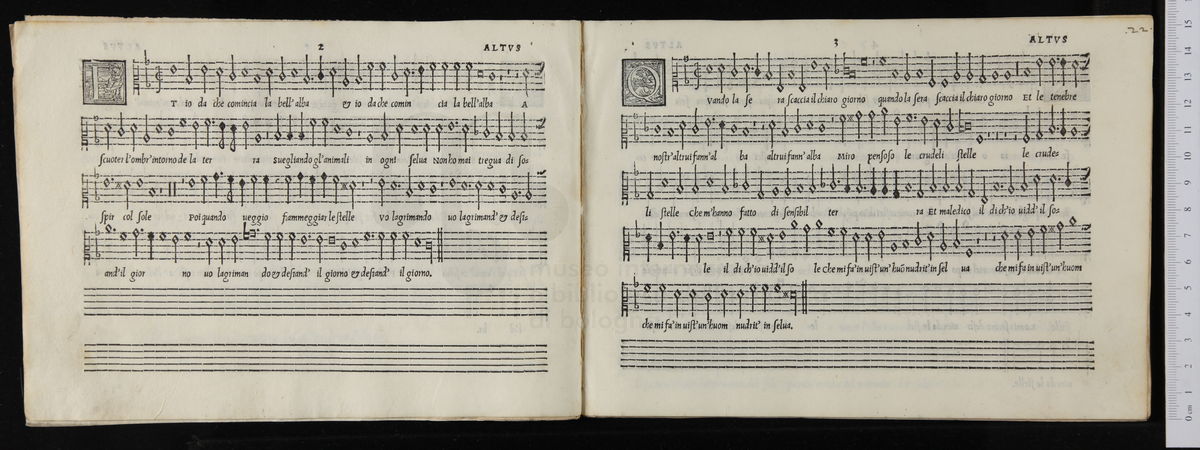 2 ALTVS
ET io da che comincia la bell'alba & io da che comin cia la bell'alba A
scuoter l'ombr'intorno de la ter ra Suegliando gl'animali in ogni selua Non ho mai tregua di sos=
spir col sole Poi quando ueggio fiammeggiar le stelle Vo lagrimando uo lagrimand' & desi=
and'il gior no uo lagriman do & desiand' il giorno & desiand' il giorno.
3 ALTVS 22
QVando la se ra scaccia il chiaro giorno quando la sera scaccia il chiaro giorno Et le tenebre
nostr'altrui fann'al ba altrui fann'alba Miro pensoso le crudeli stelle le crude=
li stelle Che m'hanno fatto di sensibil ter ra Et maledico il di ch'io uidd' il so=
le il di ch'io uidd'il so le Che mi fa'in uist'un'huō nudrit'in sel ua che mi fa'in uist'un'huom
che mi fa'in uist'un'huom nudrit' in selua.
museo in
bibliot
di bologn
0 cm 1 2 3 4 5 6 7 8 9 10 11 12 13 14 15